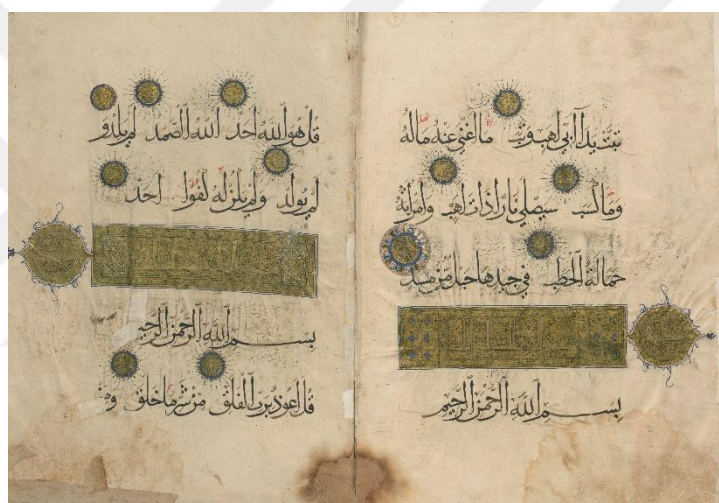 تَبَّتْ يَدَا أَبِي لَهَبٍ وَتَبَّ مَا أَغْنَى عَنْهُ مَالُهُ
وَمَا كَسَبَ سَيَصْلَى نَارًا ذَاتَ لَهَبٍ وَامْرَأَتُهُ
حَمَّالَةَ الْحَطَبِ فِي جِيدِهَا حَبْلٌ مِنْ مَسَدٍ
بِسْمِ اللَّهِ الرَّحْمَنِ الرَّحِيمِ
قُلْ هُوَ اللَّهُ أَحَدٌ اللَّهُ الصَّمَدُ لَمْ يَلِدْ وَ
لَمْ يُولَدْ وَلَمْ يَكُنْ لَهُ كُفُوًا أَحَدٌ
بِسْمِ اللَّهِ الرَّحْمَنِ الرَّحِيمِ
قُلْ أَعُوذُ بِرَبِّ الْفَلَقِ مِنْ شَرِّ مَا خَلَقَ وَمِنْ